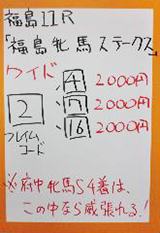 福島11R
「福島牝馬ステークス」
ワイド
4 2000円
2 7 2000円
16 2000円
フレイム
コード
※府中牝馬S4着は、
この中なら威張れる!